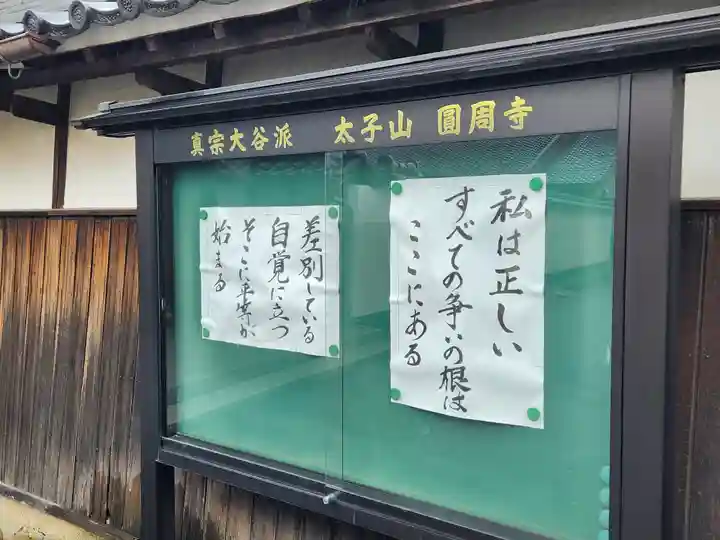 真宗大谷派 太子山 圓周寺
私は正しい
すべての争いの根は
ここにある
差別している
自覚に立つ
そこに平等が
始まる